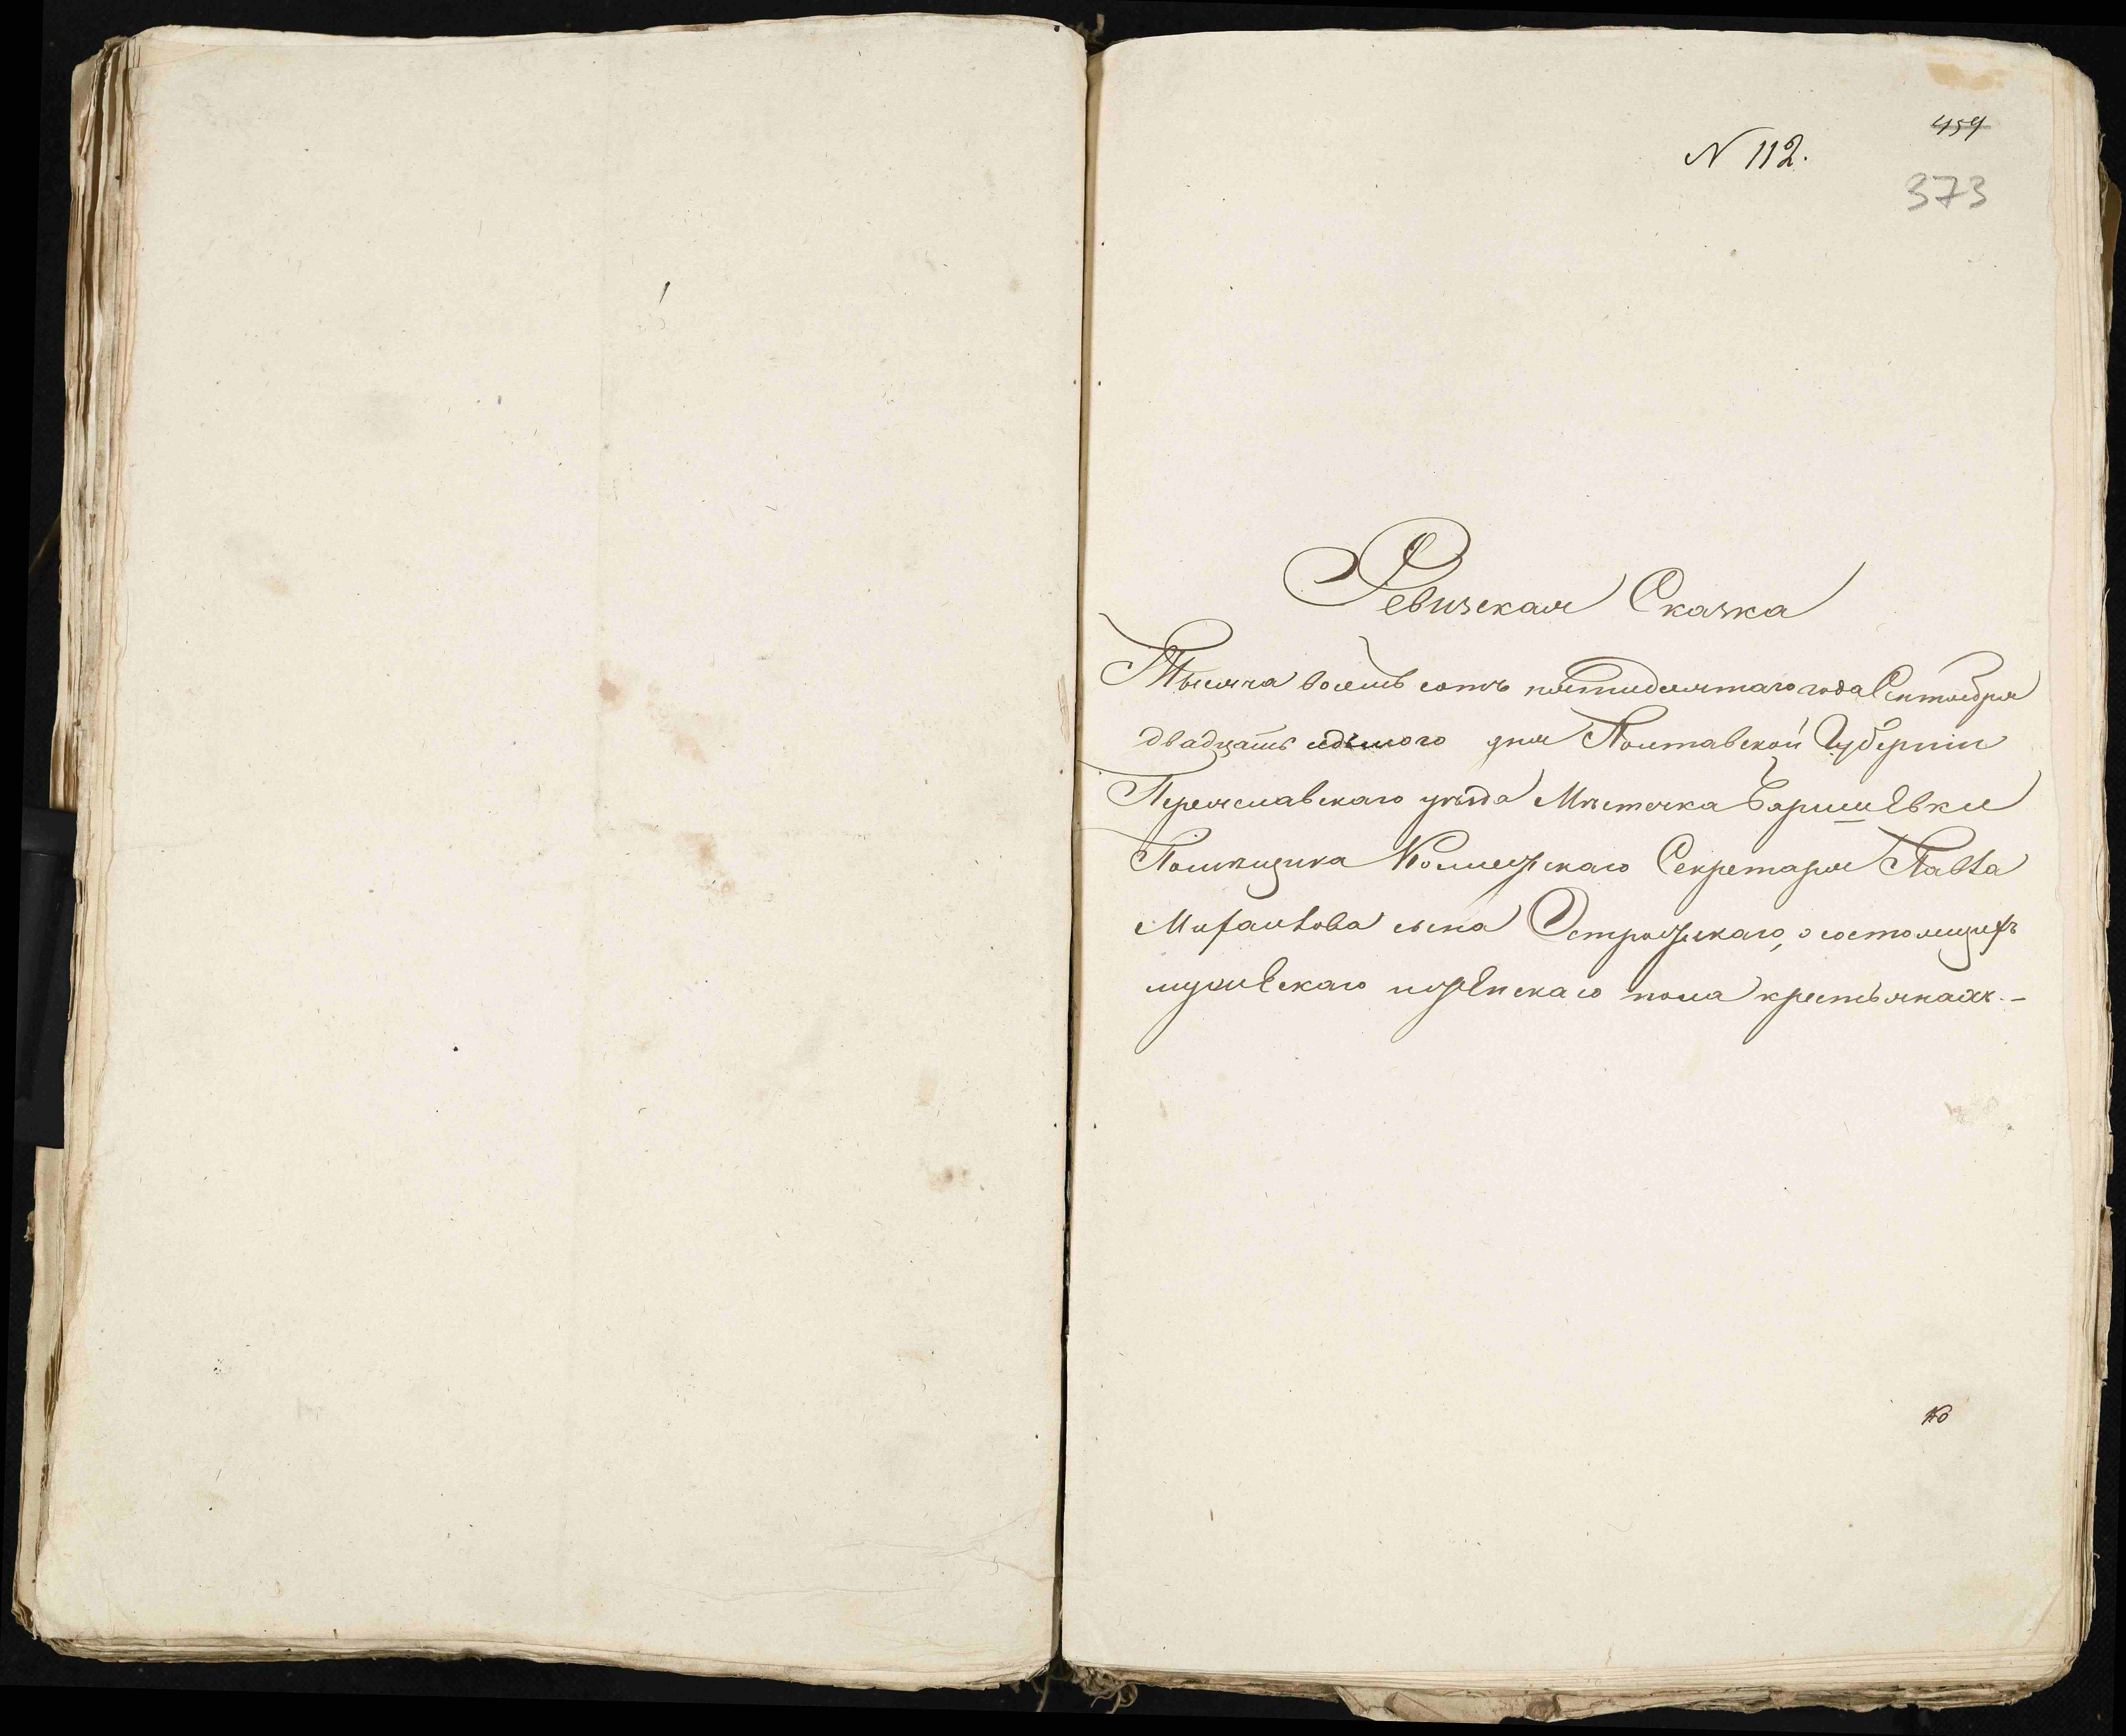 459
N 112.
373
Ревизская Сказка
Тысяча восемь сотъ пятидесятаго года Сентября
двадцать седьмого дня Полтавской Губерніи
Переяславскаго уезда Мѣстечка Баришевки
Помѣщика Коллежскаго Секретаря Павла
Михайлова сына Острожскаго, о состоящихъ
мужескаго и женскаго пола крестьянахъ.-